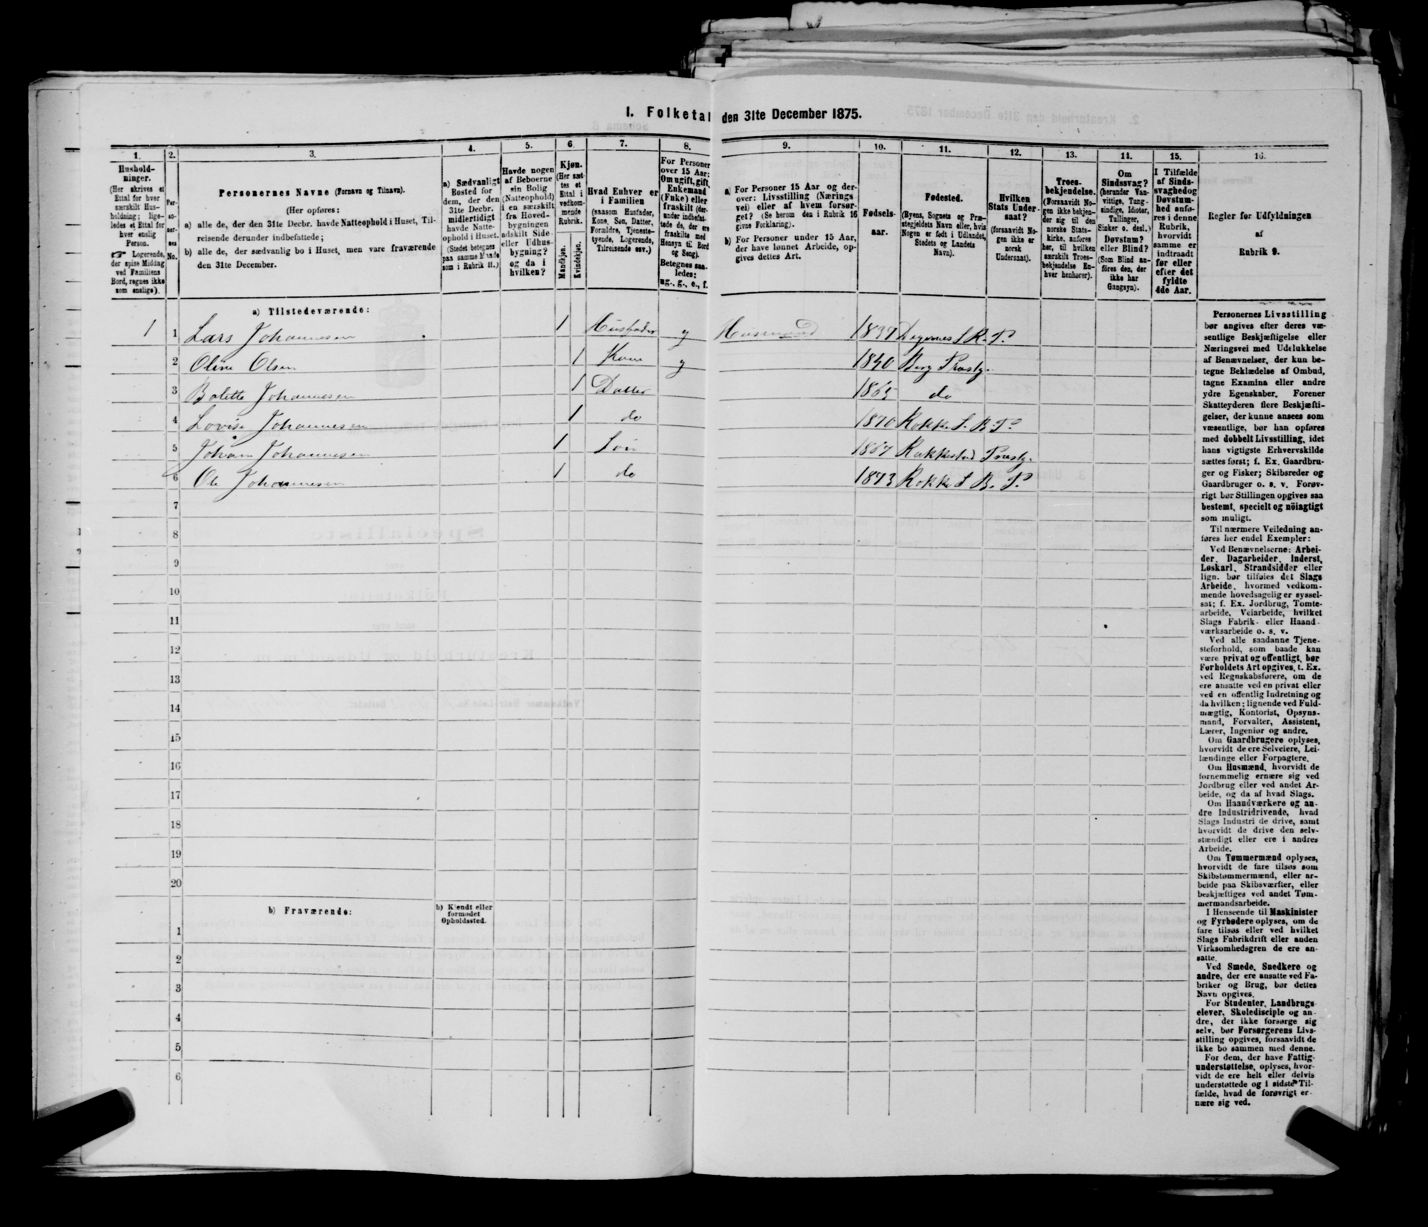 I. Folketal den 31te December 1875.
1. 2. 3. 4. 5. 6. 7. 8. 9. 10. 11. 12. 13. 14. 15. 16.
Husholdninger. (Her skrives et Ettal for hver særskilt Husholdning; ligeledes et Ettal for hver enslig Person. ☞ Logerende, der spise Middag ved Familiens Bord, regnes ikke som enslige).
Personernes No.
Personernes Navne (Fornavn og Tilnavn).
(Her opføres:
a) alle de, der den 31te Decbr. havde Natteophold i Huset, Tilreisende derunder indbefattede;
b) alle de, der sædvanlig bo i Huset, men vare fraværende den 31te December.
a) Sædvanligt Bosted for dem, der den 31te Decbr. midlertidigt havde Natteophold i Huset. (Stedet betegnes paa samme Maade som i Rubrik 11.)
Havde nogen af Beboerne sin Bolig (Natteophold) i en særskilt fra Hovedbygningen adskilt Side- eller Udhusbygning? og da i hvilken?
Kjøn. (Her sættes et Ettal i vedkommende Rubrik. Mandkjøn. Kvindekjøn.
Hvad Enhver er i Familien (saasom Husfader, Kone, Søn, Datter, Forældre, Tjenestetyende, Logerende, Tilreisende osv.)
For Personer over 15 Aar: Om ugift, gift, Enkemand (Enke) eller fraskilt (derunder indbefattede de, der ere fraskilte med Hensyn til Bord og Seng). Betegnes saaledes: ug., g., e., f.
a) For Personer 15 Aar og derover: Livsstilling (Næringsvei) eller af hvem forsørget? (Se herom den i Rubrik 16 givne Forklaring).
b) For Personer under 15 Aar, der have lønnet Arbeide, opgives dettes Art.
Fødselsaar.
Fødested. (Byens, Sognets og Præstegjeldets Navn eller, hvis Nogen er født i Udlandet, Stedets og Landets Navn).
Hvilken Stats Undersaat? (forsaavidt Nogen ikke er norsk Undersaat).
Troesbekjendelse. (Forsaavidt Nogen ikke bekjender sig til den norske Statskirke, anføres her, til hvilken særskilt Troesbekjendelse Enhver henhører).
Om Sindssvag? (herunder Vanvittige, Tungsindige, Idioter, Tullinger, Sinker o. desl.) Døvstum? eller Blind? (Som Blind anføres den, der ikke har Gangsyn).
I Tilfælde af Sindssvaghed og Døvstumhed anføres i denne Rubrik, hvorvidt samme er indtraadt før eller efter det fyldte 4de Aar.
Regler for Udfyldningen af Rubrik 9.
a) Tilstedeværende:
1 1 Lars Johannesen 1 Husfader g Husmand Degernes S. R. P.
2 Oline Olsen 1 Kone g 1840 Berg Præstg.
3 Bolette Johannesen 1 Datter do
4 Lovise Johannesen 1 do 1870 Rokke S. B. P.
5 Johan Johannesen 1 Søn Rakkestad Præstg.
6 Ole Johannesen 1 do 1873 Rokke S. B. P.
7
8
9
10
11
12
13
14
15
16
17
18
19
20
b) Fraværende: b) Kjendt eller formodet Opholdssted.
1
2
3
4
5
6
Personernes Livsstilling
bør angives efter deres væ-
sentlige Beskjæftigelse eller
Næringsvei med Udelukkelse
af Benævnelser, der kun be-
tegne Beklædelse af Ombud,
tagne Examina eller andre
ydre Egenskaber. Forener
Skatteyderen flere Beskjæfti-
gelser, der kunne ansees som
væsentlige, bør han opføres
med dobbelt Livsstilling, idet
hans vigtigste Erhvervskilde
sættes først; f. Ex. Gaardbru-
ger og Fisker; Skibsreder og
Gaardbruger o. s. v. Forøv-
rigt bør Stillingen opgives saa
bestemt, specielt og nöiagtigt
som muligt.
Til nærmere Veiledning an-
føres her endel Exempler:
Ved Benævnelserne: Arbei-
der, Dagarbeider, Inderst,
Løskarl, Strandsidder eller
lign. bør tilføies det Slags
Arbeide, hvormed vedkom-
mende hovedsagelig er syssel-
sat; f. Ex. Jordbrug, Tomte-
arbeide, Veiarbeide, hvilket
Slags Fabrik- eller Haand-
værksarbeide o. s. v.
Ved alle saadanne Tjene-
steforhold, som baade kan
være privat og offentligt, bør
Forholdets Art opgives, t. Ex.
ved Regnskabsførere, om de
ere ansatte ved en privat eller
ved en offentlig Indretning og
da hvilken; lignende ved Fuld-
mægtig, Kontorist, Opsyns-
mand, Forvalter, Assistent,
Lærer, Ingeniør og andre.
Om Gaardbrugere oplyses,
hvorvidt de ere Selveiere, Lei-
lændinge eller Forpagtere.
Om Husmænd, hvorvidt de
fornemmelig ernære sig ved
Jordbrug eller ved andet Ar-
beide, og da af hvad Slags.
Om Haandværkere og an-
dre Industridrivende, hvad
Slags Industri de drive, samt
hvorvidt de drive den selv-
stændigt eller ere i andres
Arbeide.
Om Tømmermænd oplyses,
hvorvidt de fare tilsøs som
Skibstømmermænd, eller ar-
beide paa Skibsværfter, eller
beskjæftiges ved andet Tøm-
mermandsarbeide.
I Henseende til Maskinister
og Fyrbødere oplyses, om de
fare tilsøs eller ved hvilket
Slags Fabrikdrift eller anden
Virksomhedsgren de ere an-
satte.
Ved Smede, Snedkere og
andre, der ere ansatte ved Fa-
briker og Brug, bør dettes
Navn opgives.
For Studenter, Landbrugs-
elever, Skoledisciple og an-
dre, der ikke forsørge sig
selv, bør Forsørgerens Livs-
stilling opgives, forsaavidt de
ikke bo sammen med denne.
For dem, der have Fattig-
understøttelse, oplyses, hvor-
vidt de ere helt eller delvis
understøttede og i sidste Til-
fælde, hvad de forøvrigt er-
nære sig ved.